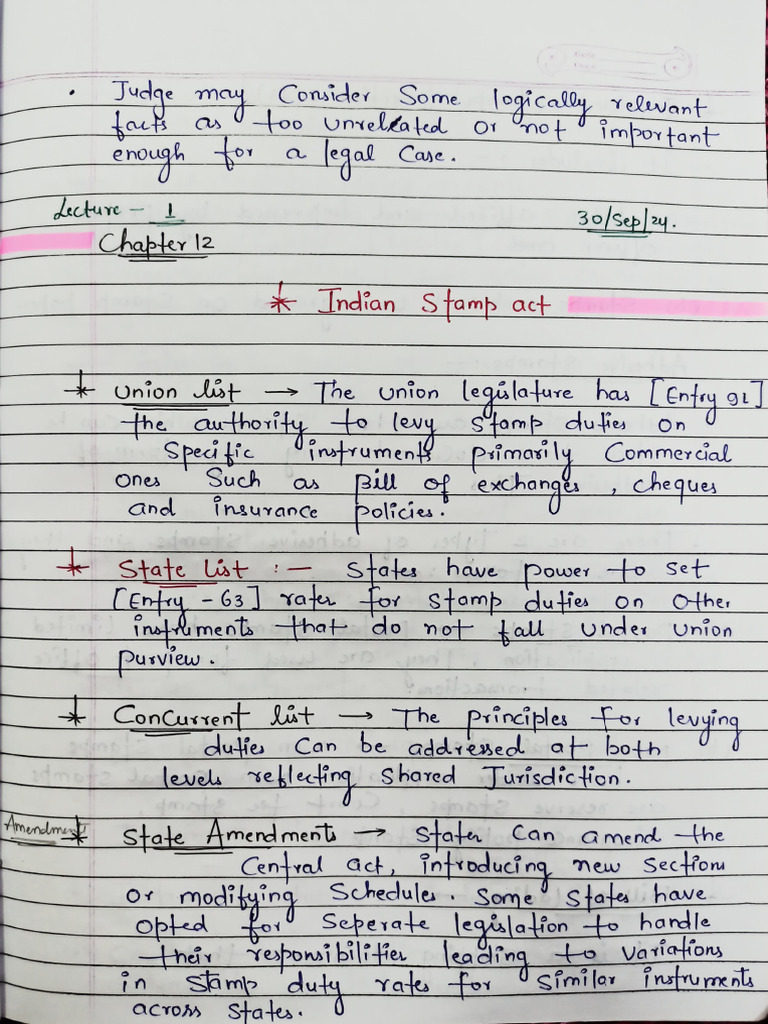 • Judge may Consider Some logically relevant
facts as too unrelated or not important
enough for a legal Case.
Lecture - 1
30/Sep/24.
Chapter 12
* Indian Stamp act
* Union list → The union legislature has [Entry 91]
the authority to levy stamp duties on
Specific instruments primarily Commercial
ones Such as Bill of exchanges, cheques
and insurance policies.
* State List :- States have power to set
[Entry - 63] rates for stamp duties on other
instruments that do not fall under union
purview.
* Concurrent list → The principles for levying
duties Can be addressed at both
levels reflecting Shared Jurisdiction.
Amendment * State Amendments → States Can amend the
Central act, introducing new section
or modifying Schedules. Some States have
opted for Seperate legislation to handle
their responsibilities leading to variations
in stamp duty rates for similar instruments
across states.